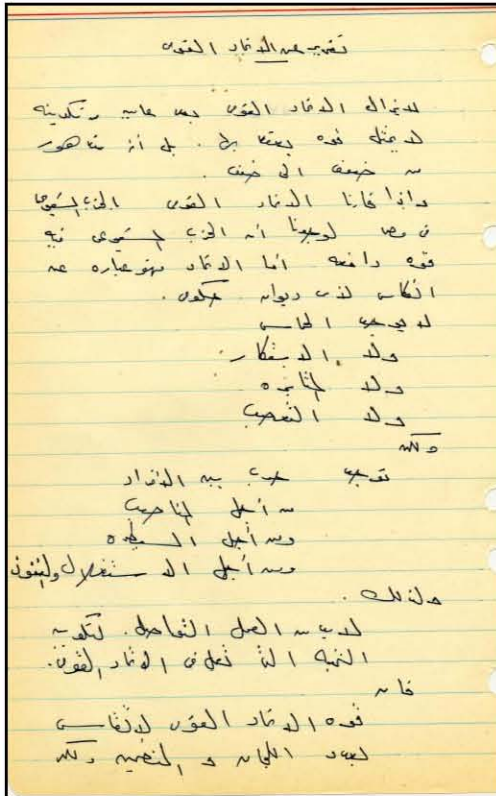 تقرير عن الاتحاد القومى
لا يزال الاتحاد القومى بعد عامين من تكوينه
لا يمثل قوه يعتد بها . بل أنه متدهور
من ضعف الى ضعف .
واذا قارنا الاتحاد القومى الحزب الشيوعى
فى مصر لوجدنا أن الحزب الشيوعى فيه
قوه دافعه أما الاتحاد فهو عباره عن
انعكاس لأى ديوان حكومى .
لا يوجد الحماس
ولا الابتكار
ولا المثابره
ولا التعصب
ولكن
توجد حرب بين الأفراد
من أجل المناصب
ومن أجل السيطره
ومن أجل الاستغلال والنفوذ
ولذلك .
لابد من العمل المتواصل لتكوين
النخبه التى تعمل فى الاتحاد القومى .
فان
قوه الاتحاد القومى لا تقاس
بعدد اللجان و المنضمين ولكن